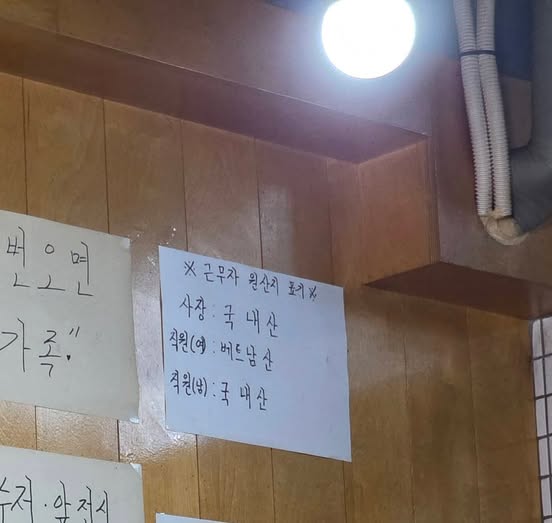 번 오 면
가 족."
※ 근무자 원산지 표기 ※
사장 : 국 내 산
직원(여) : 베트남 산
직원(남) : 국 내 산
수저 · 앞 접시